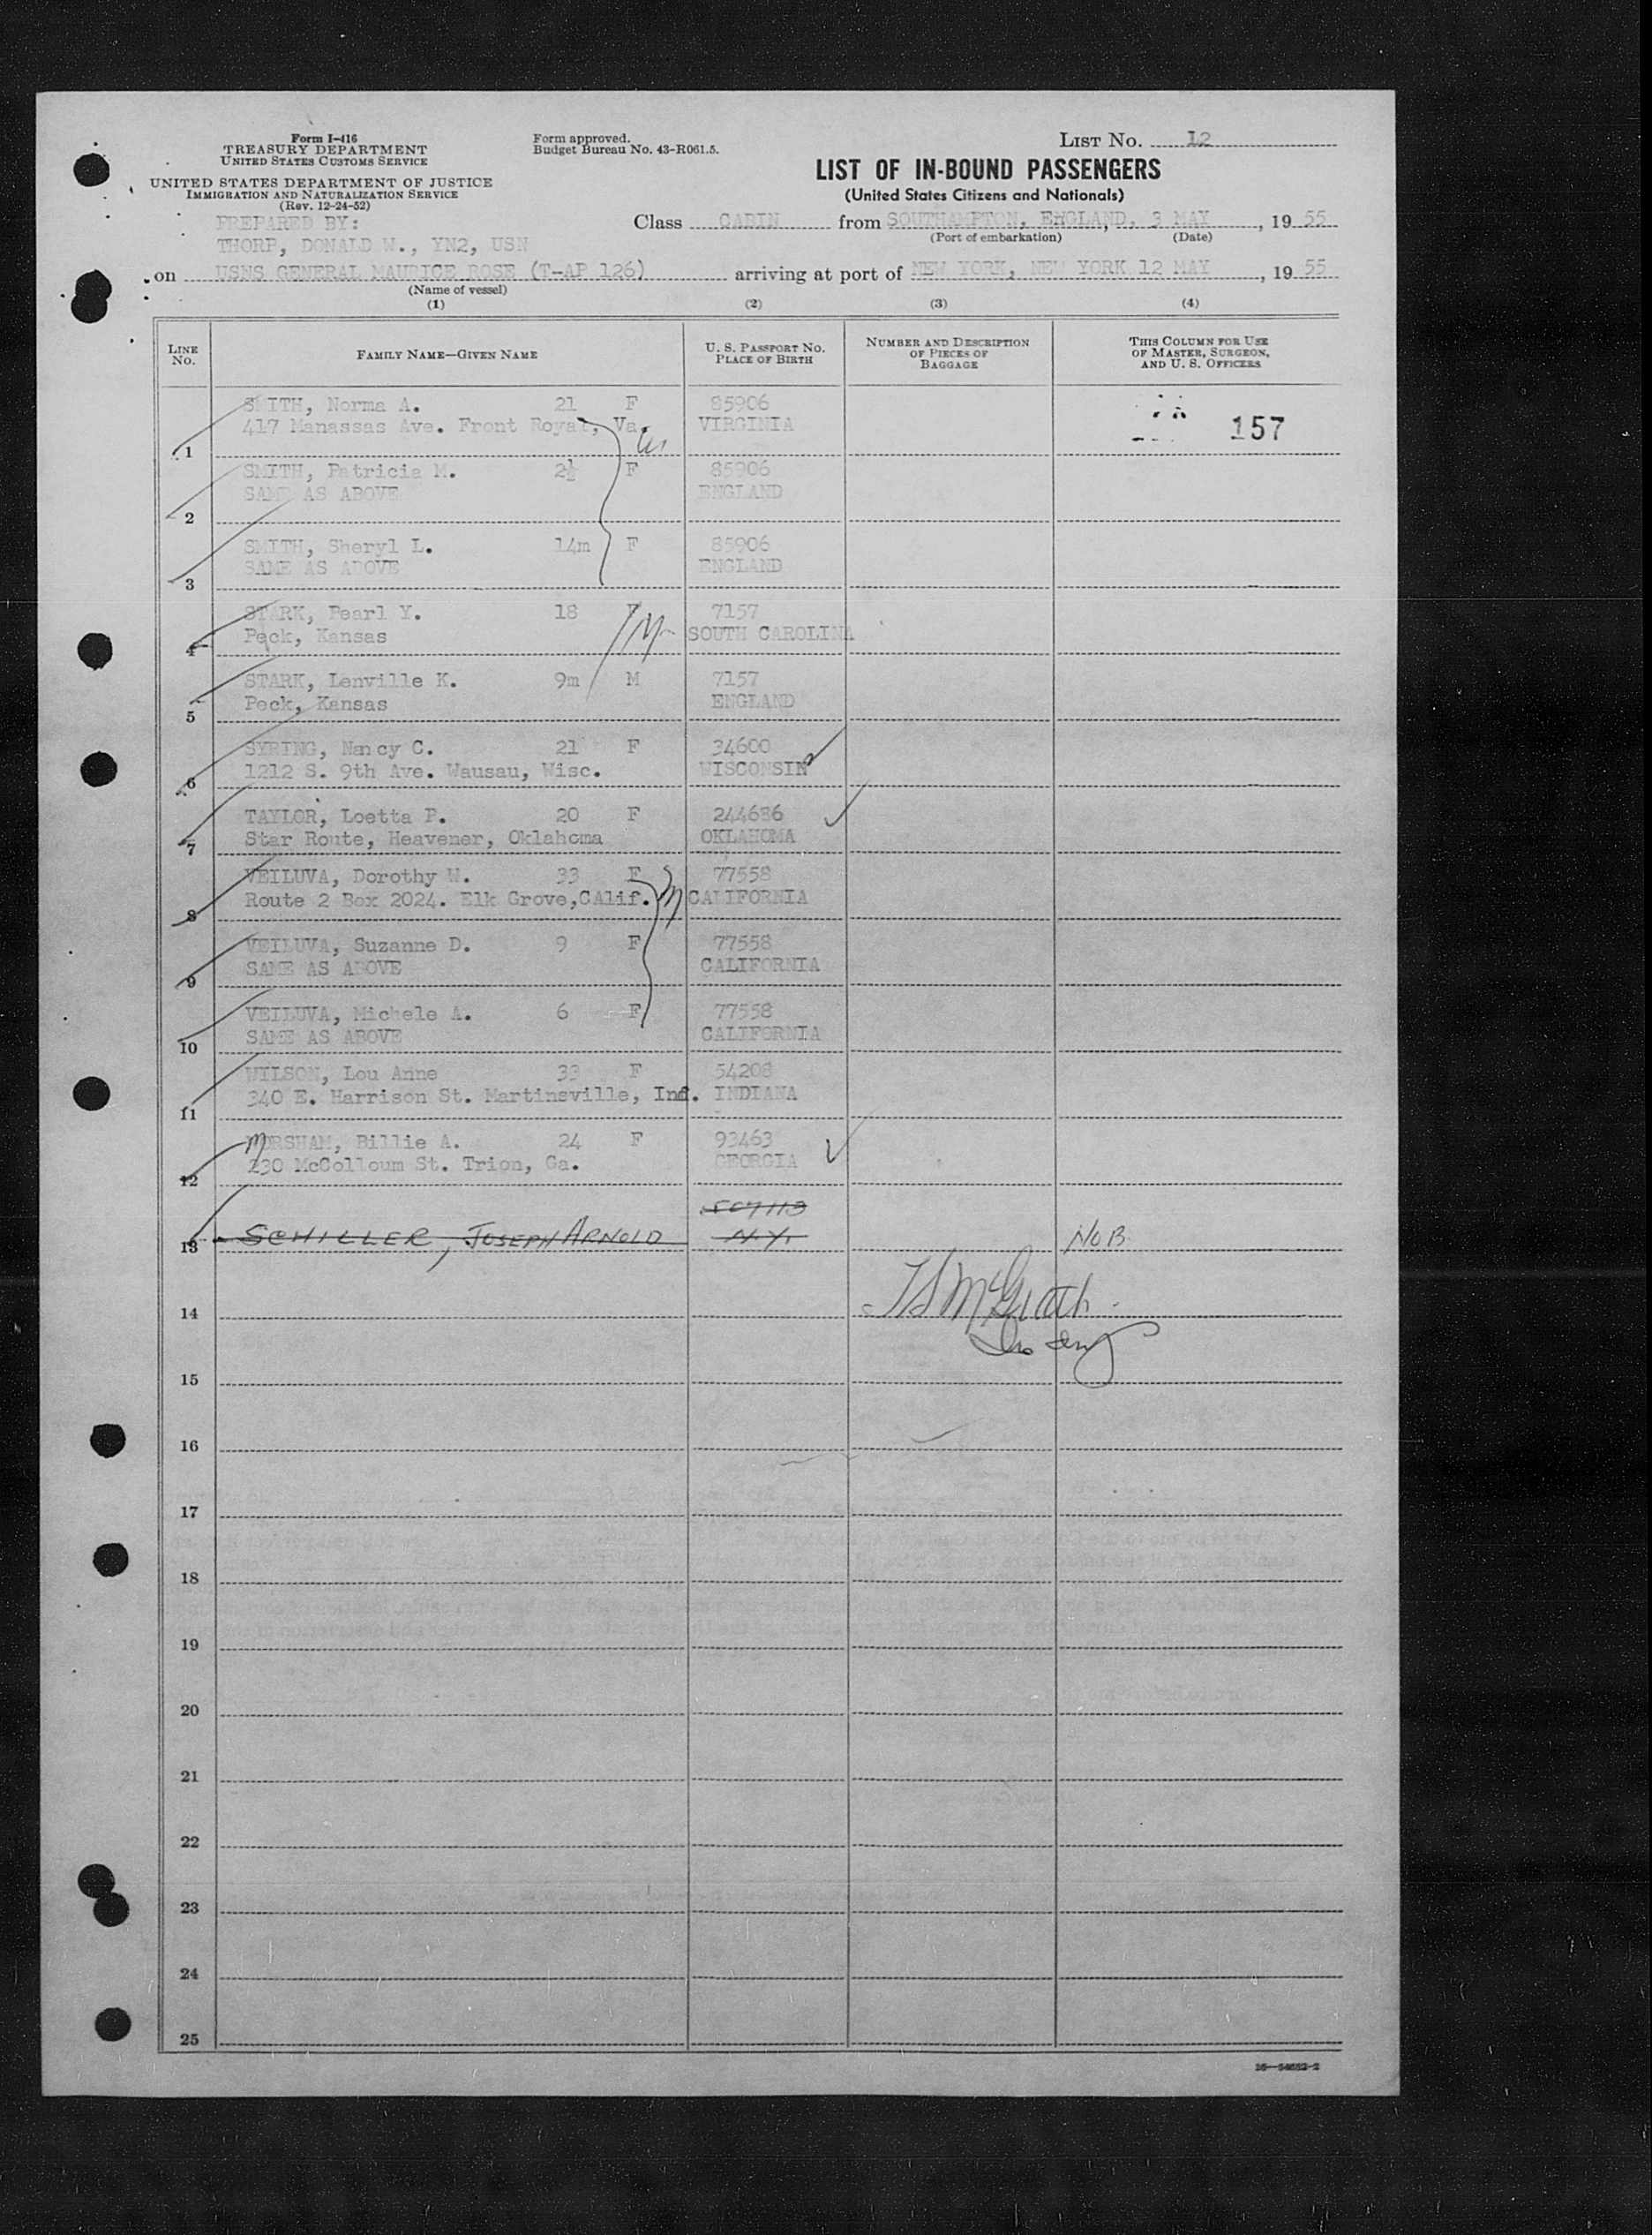 Form I-416
TREASURY DEPARTMENT
UNITED STATES CUSTOMS SERVICE
UNITED STATES DEPARTMENT OF JUSTICE
IMMIGRATION AND NATURALIZATION SERVICE
(Rev. 12-24-52)
Form approved.
Budget Bureau No. 43-R061.5.
LIST NO. 12
LIST OF IN-BOUND PASSENGERS
(United States Citizens and Nationals)
PREPARED BY:
THORP, DONALD W., YN2, USN
Class CABIN from SOUTHAMPTON, ENGLAND, 3 MAY, 19 55
(Port of embarkation) (Date)
on USNS GENERAL MAURICE ROSE (T-AP 126) arriving at port of NEW YORK, NEW YORK 12 MAY, 19 55
(Name of vessel)
(1) (2) (3) (4)
LINE NO. FAMILY NAME—GIVEN NAME U. S. PASSPORT NO. PLACE OF BIRTH NUMBER AND DESCRIPTION OF PIECES OF BAGGAGE THIS COLUMN FOR USE OF MASTER, SURGEON, AND U. S. OFFICERS
SMITH, Norma A. 21 F 85906
417 Manassas Ave. Front Royal, Va. VIRGINIA 157
1
SMITH, Patricia M. 2½ F 85906
SAME AS ABOVE ENGLAND
2
SMITH, Sheryl L. 14m F 85906
SAME AS ABOVE ENGLAND
3
STARK, Pearl Y. 18 F 7157
Peck, Kansas SOUTH CAROLINA
4
STARK, Lenville K. 9m M 7157
Peck, Kansas ENGLAND
5
SYRING, Nancy C. 21 F 34600
1212 S. 9th Ave. Wausau, Wisc. WISCONSIN
6
TAYLOR, Loetta P. 20 F 244686
Star Route, Heavener, Oklahoma OKLAHOMA
7
VEILUVA, Dorothy W. 33 F 77558
Route 2 Box 2024. Elk Grove, CAlif. CALIFORNIA
8
VEILUVA, Suzanne D. 9 F 77558
SAME AS ABOVE CALIFORNIA
9
VEILUVA, Michele A. 6 F 77558
SAME AS ABOVE CALIFORNIA
10
WILSON, Lou Anne 33 F 54208
340 E. Harrison St. Martinsville, Ind. INDIANA
11
WORSHAM, Billie A. 24 F 93463
230 McColloum St. Trion, Ga. GEORGIA
12
507113
13 SCHILLER, JOSEPH ARNOLD N.Y. NOB
14 McGrath
15
16
17
18
19
20
21
22
23
24
25